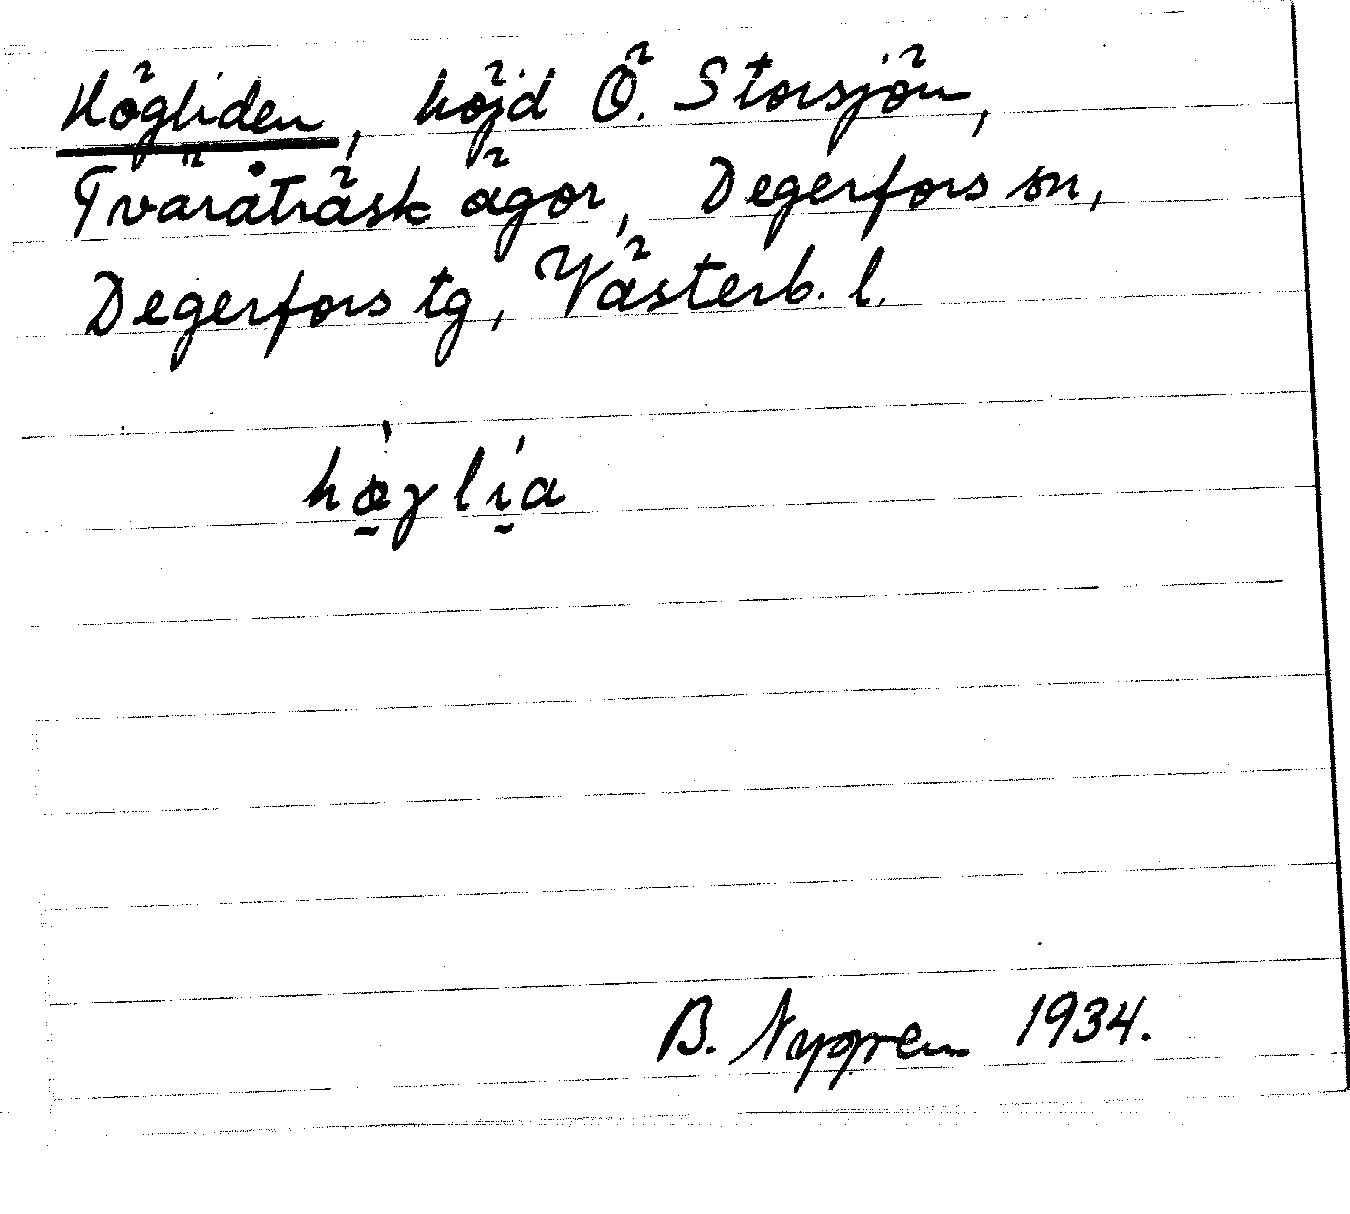 Högliden, höjd Ö. Storsjön,
Tväråträsk ägor, Degerfors sn,
Degerfors tg, Västerb. l.
hø̰̀gl<ḭ́a
B. Nygren 1934.